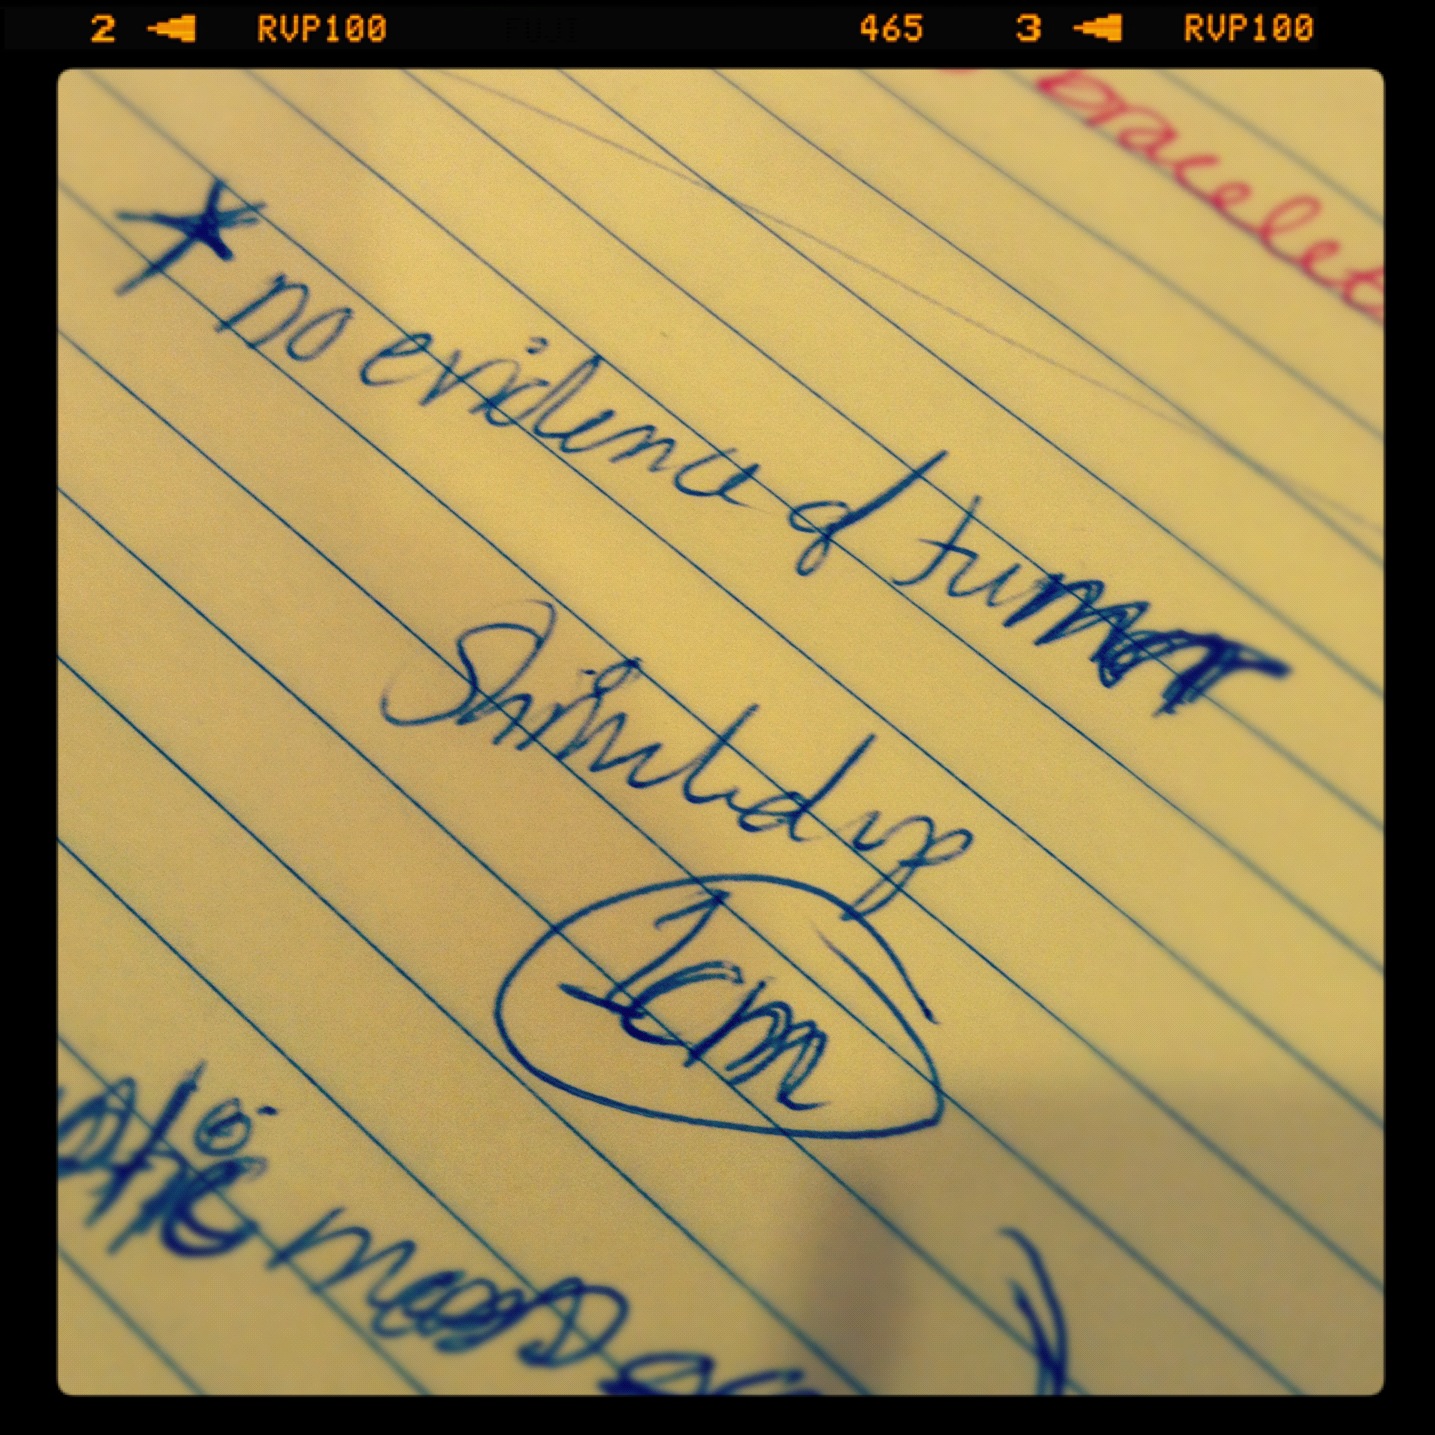 2 ◀ RVP100 FUJI 465 3 ◀ RVP100
bracelet
* no evidence of tumor
Shrinked up
1cm
mass